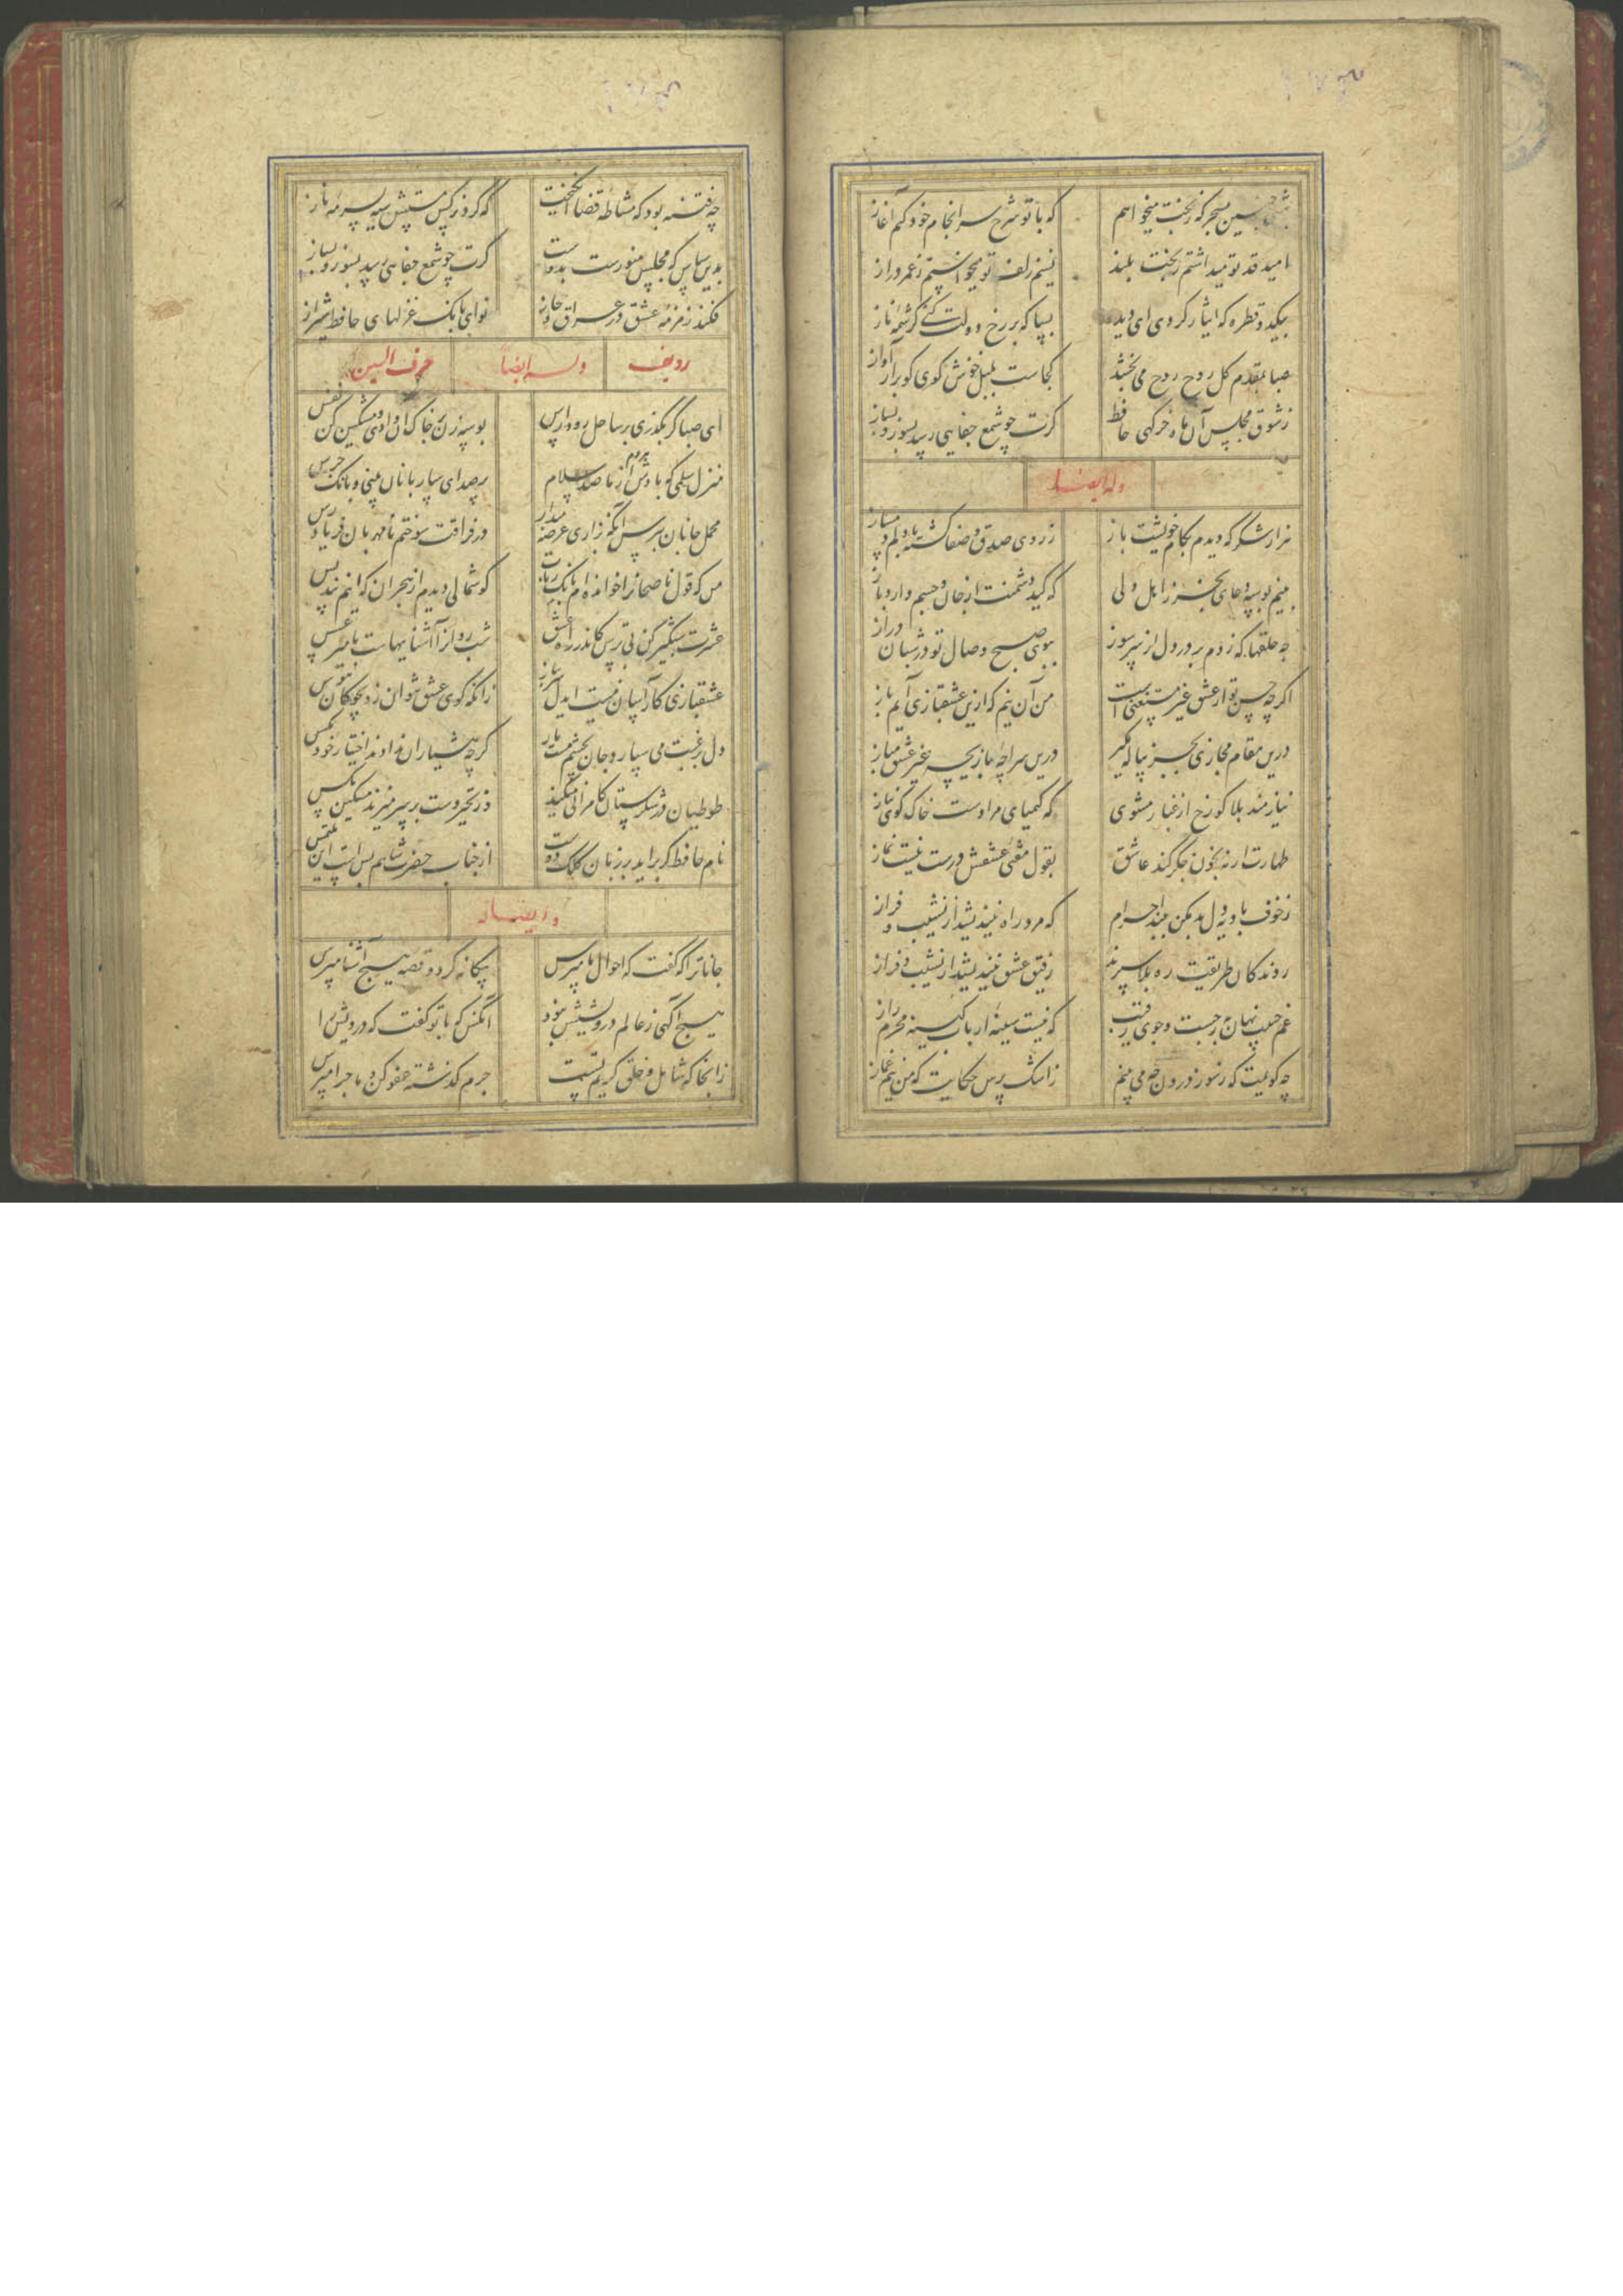 شبی چنین بسحر که ز بخت میخواهم که با تو شرح سرانجام خود کنم آغاز
امید قد تو میداشتم ز بخت بلند نسیم زلف تو میخواستم ز عمر دراز
بیکدو قطره که ایثار کردی ای دیده بسیا که بر رخ دولت کنی کرشمه و ناز
صبا بمقدم کل روح روح می بخشد کجاست بلبل خوش کوی کو برار آواز
ز شوق مجلس آن ماه خرکهی حافظ کرت چو شمع جفایی رسد بسوز و بساز
وله ایضا
هزار شکر که دیدم بکام خویشت باز ز روی صدق و صفا کشته با دلم دمساز
منم بوسه و دعای بجز ز اهل دلی که کید دشمنت از جان و جسم دارد باز
چه حلقها که زدم بر در دل از سر سوز ببوی صبح وصال تو در شبان دراز
اکرچه حسن تو از عشق غیر مستغنی است من آن نیم که ازین عشقبازی آیم باز
درین مقام مجازی بجز پیاله مکیر درین سراچه بازیچه غیر عشق مباز
نیازمند بلا کو رخ از غبار مشوی که کیمیای مرادست خاک کوی نیاز
طهارت ار نه بخون جکر کند عاشق بقول مفتی عشقش درست نیست نماز
ز خوف بادیه دل بد مکن ببند احرام که مرد راه نیندیشد از نشیب و فراز
روندکان طریقت ره بلا سپرند رفیق عشق نیندیشد از نشیب و فراز
غم حبیب نهان به ز جست و جوی رقیب که نیست سینه ارباب کینه محرم راز
چه کویمت که ز سوز درون چه می بینم ز اشک پرس حکایت که من نیم غماز
چه فتنه بود که مشاطه قضا انکیخت که کرد نرکس مستش سیه بسرمه ناز
بدین سپاس که مجلس منورست بدوست کرت چو شمع جفایی رسد بسوز و بساز
فکند زمزمه عشق در عراق و حجاز نوای بانک غزلهای حافظ شیراز
ردیف وله ایضا حرف السین
ای صبا کر بکذری بر ساحل رود ارس بوسه زن بر خاک آن وادی و مشکین کن نفس
منزل سلمی که بادش هر دم از ما صد سلام پر صدای ساربانان بینی و بانک جرس
محمل جانان ببوس آنکه بزاری عرضه دار در فراقت سوختم نامهربان فریاد رس
من که قول ناصحانرا خوانده ام بانک رباب کوشمالی دیدم از هجران که اینم پند بس
عشرت شبکیر کن بی ترس کاندر راه عشق شب روانرا آشناییهاست با میر عسس
عشقبازی کار آسان نیست ای دل سر بباز زانکه کوی عشق نتوان زد بچوکان هوس
دل برغبت می سپارد جان بچشم مست یار کرچه هشیاران ندادند اختیار خود بکس
طوطیان در شکرستان کامرانی میکنند وز تحیر دست بر سر میزند مسکین مکس
نام حافظ کر براید بر زبان کلک دوست از جناب حضرت شاهم بس است این ملتمس
وله ایضا
جانا ترا که کفت که احوال ما مپرس بیکانه کرد و قصه هیچ آشنا مپرس
هیچ آکهی ز عالم درویشیش نبود آنکس که با تو کفت که درویش را
زانجا که شامل و خلق کریم تست جرم کذشته عفو کن و ماجرا مپرس